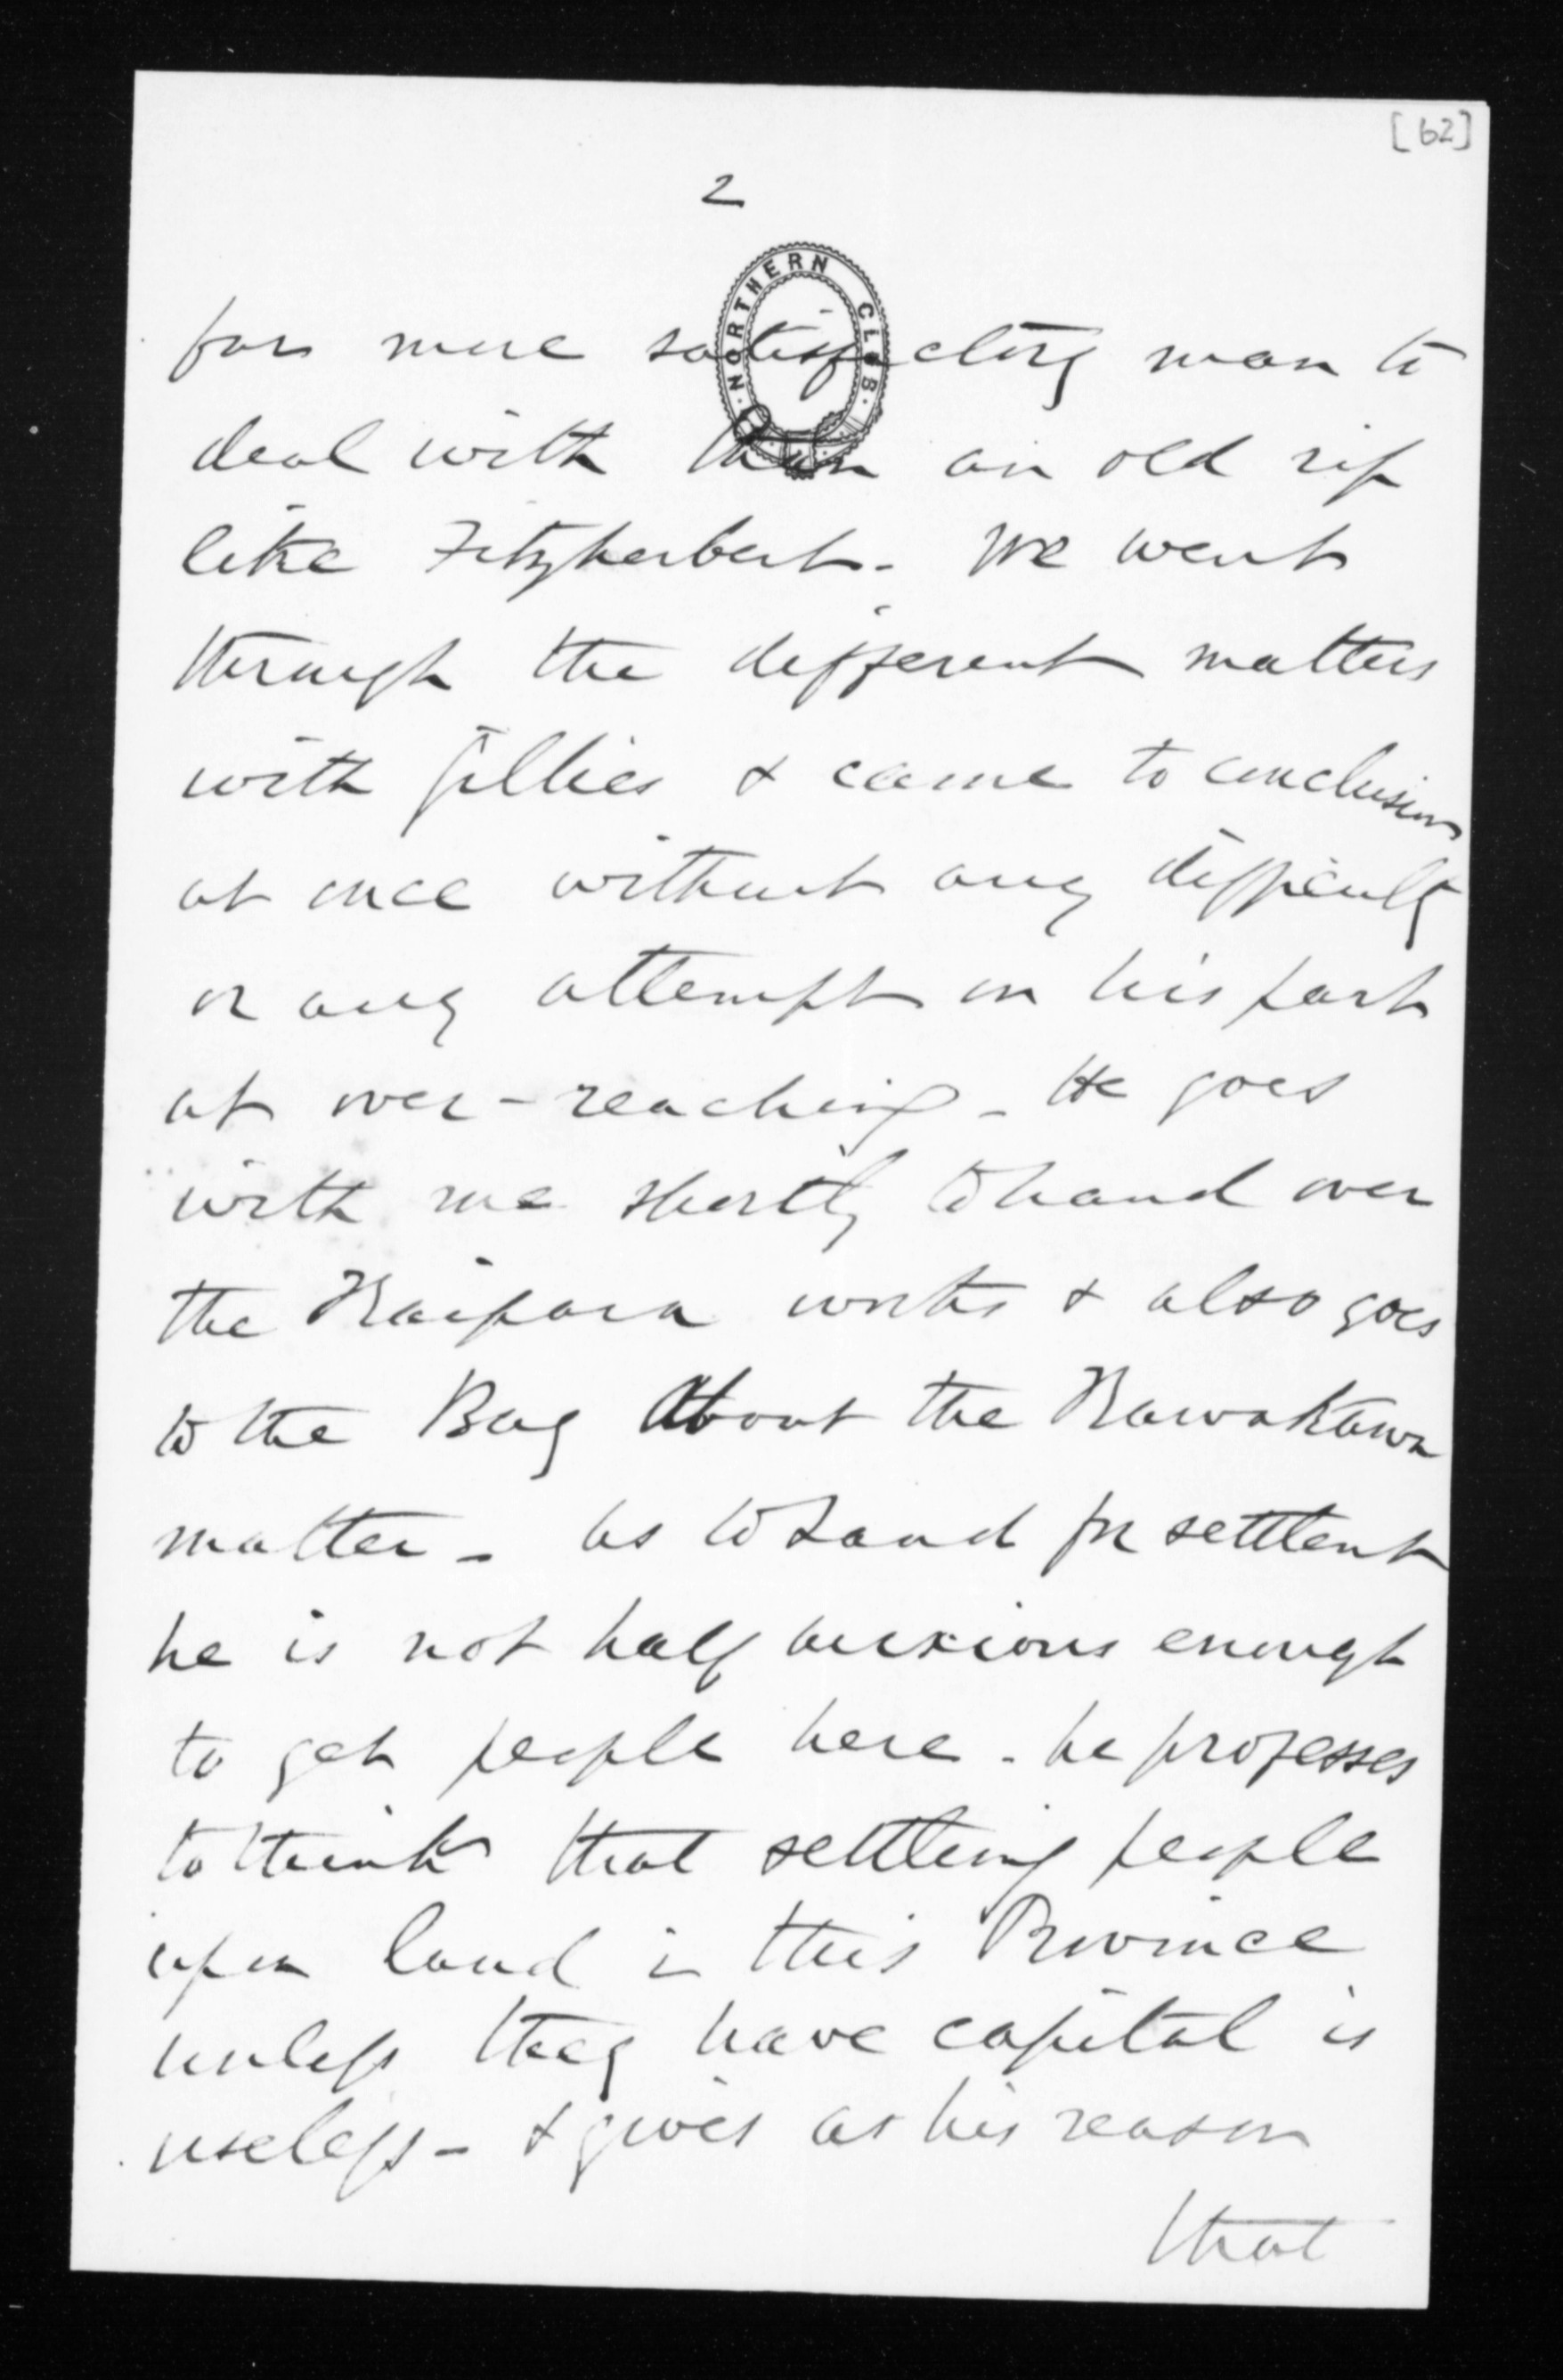 [62]
2
NORTHERN CLUB
far more satisfactory man to
deal with than an old rip
like Fitzherbert. We went
through the different matters
with Gillies & came to conclusions
at once without any difficulty
or any attempt on his part
at over-reaching - He goes
with me shortly to hand over
the Kaipara works & also goes
to the Bay about the Kawakawa
matter - as to Land for settlent
he is not half anxious enough
to get people here - he professes
to think that settling people
upon land in this Province
unless they have capital is
useless - & gives as his reason
that